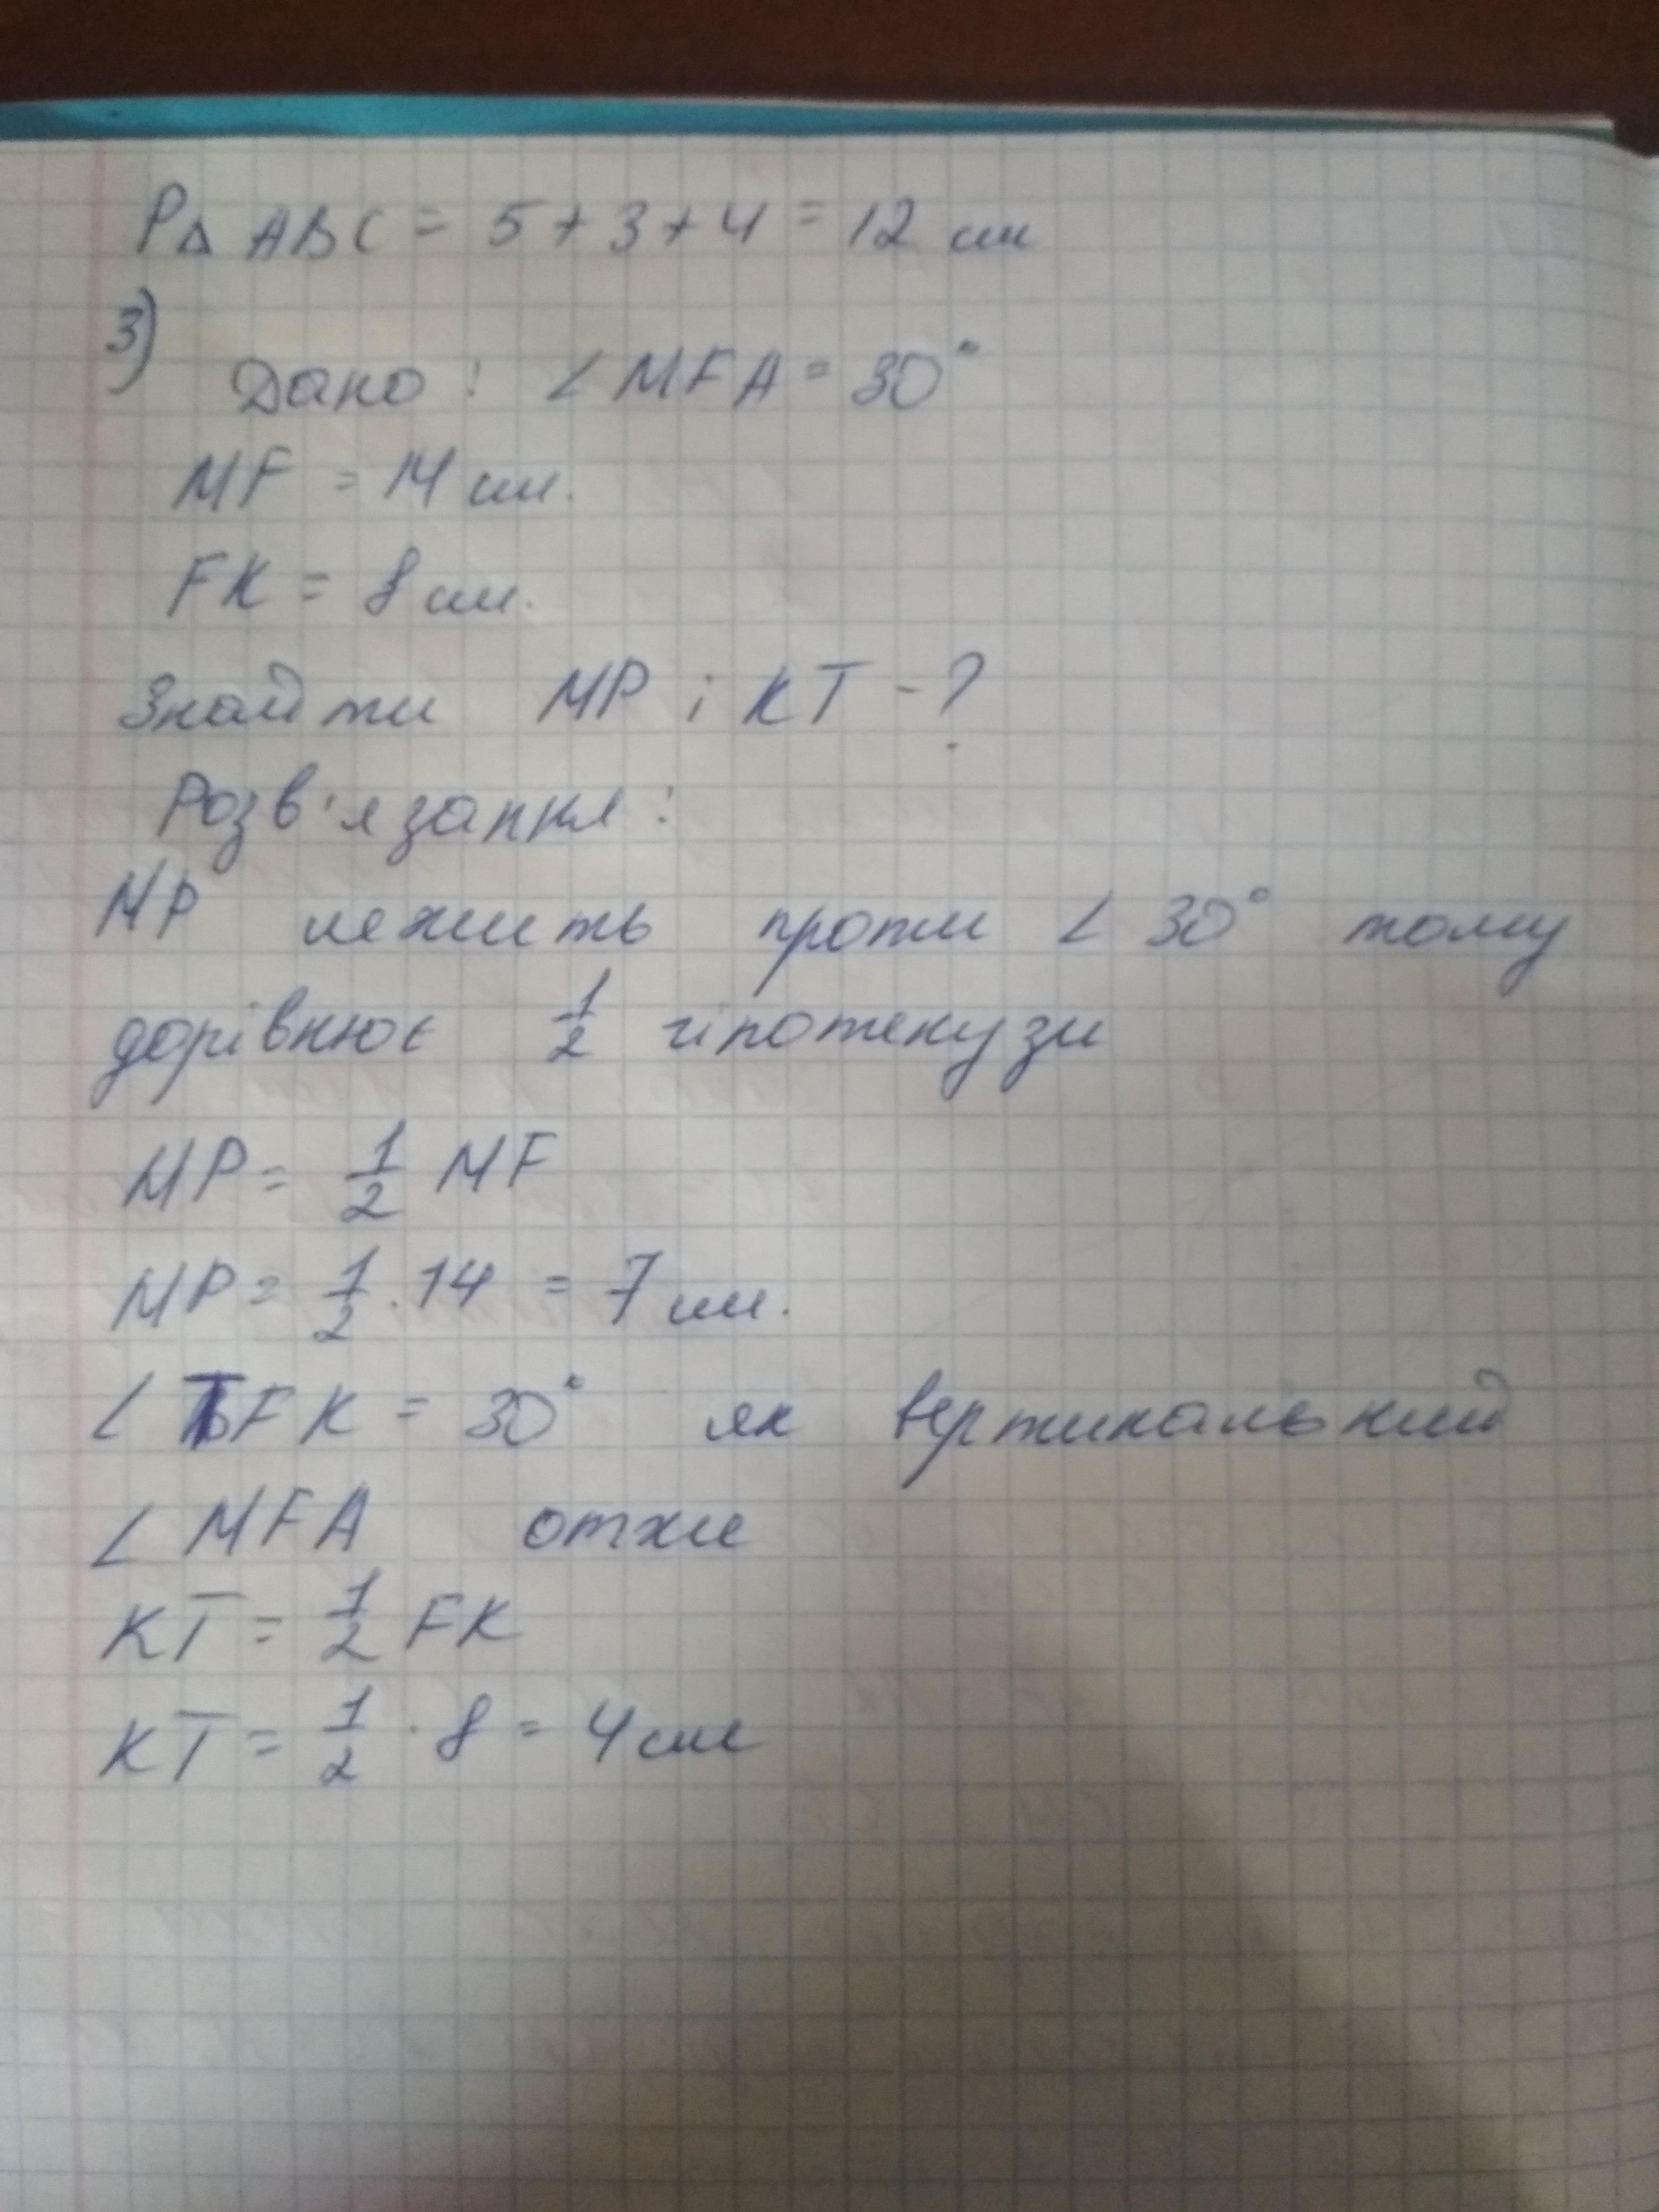 P△ ABC = 5 + 3 + 4 = 12 см
3)
Дано: ∠ MFA = 30°
MF = 14 см.
FK = 8 см.
Знайти MP і KT - ?
Розв'язання:
MP лежить проти ∠ 30° тому
дорівнює 1/2 гіпотенузи
MP = 1/2 MF
MP = 1/2 · 14 = 7 см.
∠ TFK = 30° як вертикальний
∠ MFA отже
KT = 1/2 FK
KT = 1/2 · 8 = 4 см